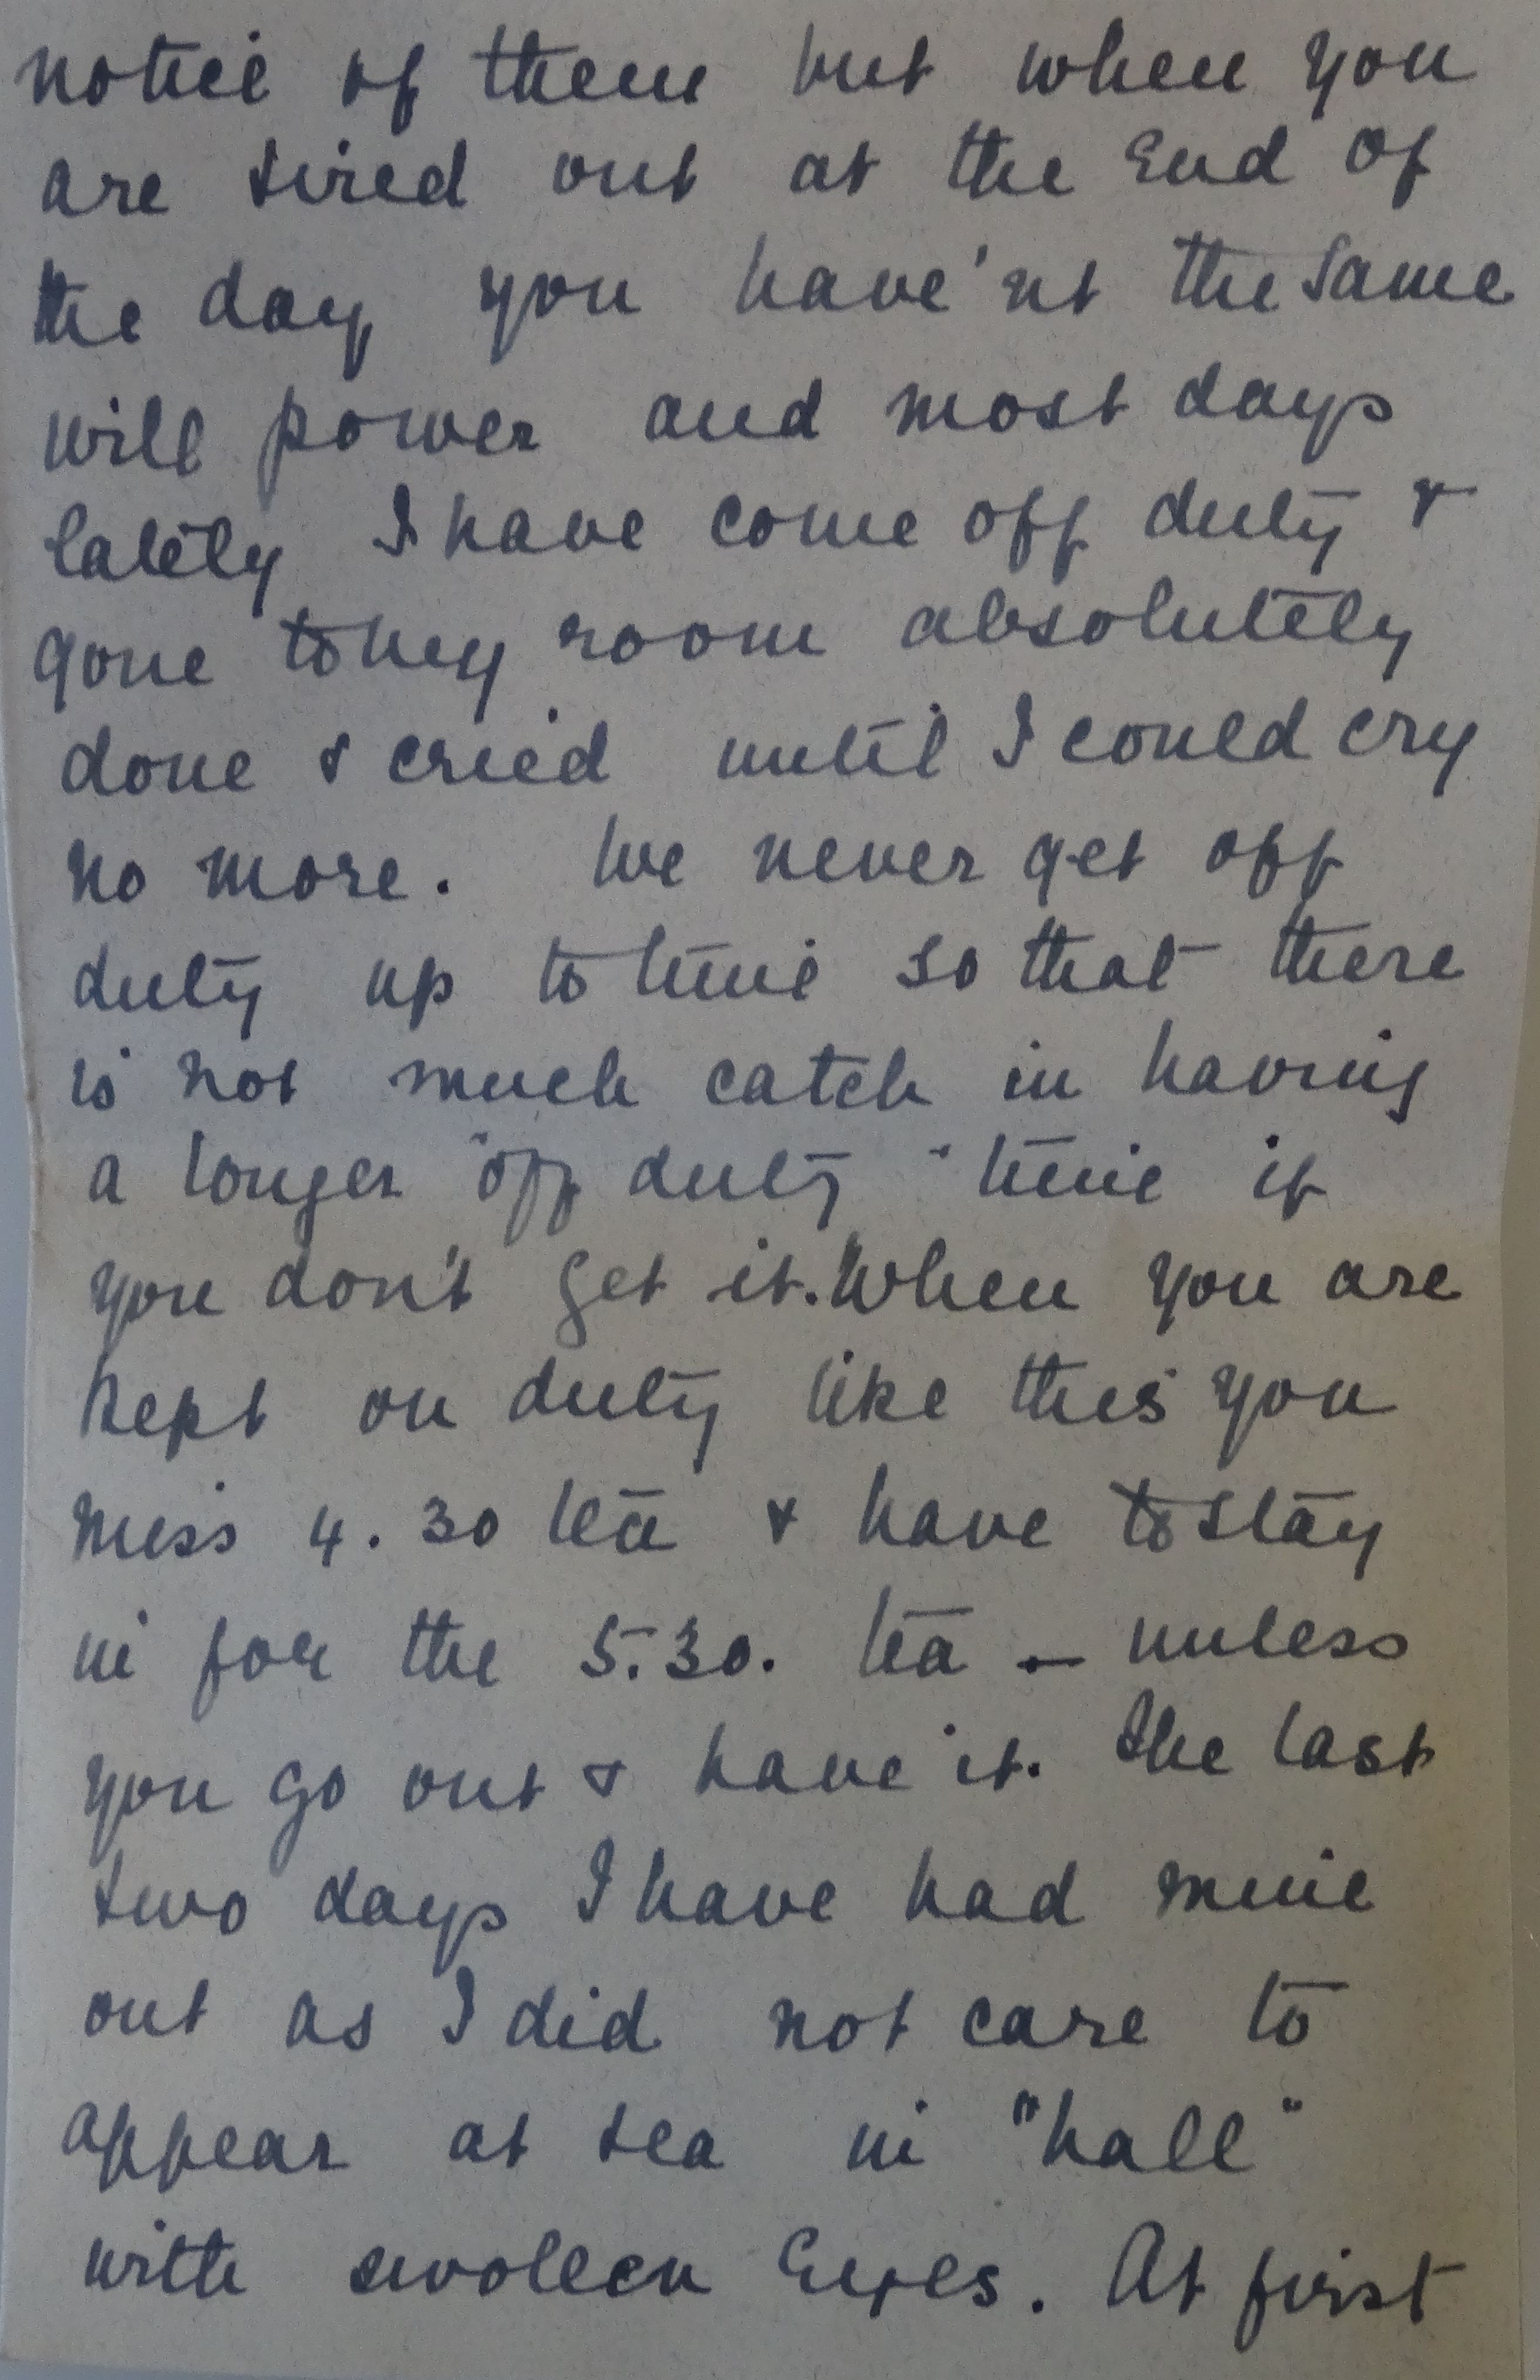 notice of them but when you
are tired out at the End of
the day you have'nt the same
will power and most days
lately I have come off duty &
gone to my room absolutely
done & cried until I could cry
no more. We never get off
duty up to time so that there
is not much catch in having
a longer "off duty" time if
you don't get it. When you are
kept on duty like this you
miss 4.30 tea & have to stay
in for the 5.30. tea - unless
you go out & have it. The last
two days I have had mine
out as I did not care to
appear at tea in "hall"
with swolen Eyes. At first